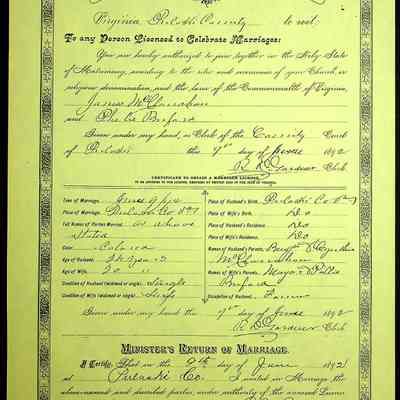 Virginia Pulaski County to wit:
To any Person Licensed to Celebrate Marriages:
You are hereby authorized to join together in the Holy State
of Matrimony, according to the rites and ceremonies of your Church or
religious denomination, and the laws of the Commonwealth of Virginia,
James McClanahan
and
Given under my hand, as Clerk of the County Court
of Pulaski this 7th day of June 1892
Clerk
CERTIFICATE TO OBTAIN A MARRIAGE LICENSE,
Time of Marriage, June 9th
Place of Marriage, Pulaski Co Va
Full Names of Parties Married, as above
stated
Color, Colored
Age of Husband,
Age of Wife, 20 "
Condition of Husband (widowed or single), Single
Condition of Wife (widowed or single), Single
Place of Husband's Birth, Pulaski Co Va
Place of Wife's Birth, Do
Place of Husband's Residence, Do
Place of Wife's Residence, Do
Names of Husband's Parents,
McClanahan
Names of Wife's Parents,
Buford
Occupation of Husband, Farmer
Given under my hand this 7th day of June 1892
Clerk
MINISTER'S RETURN OF MARRIAGE.
I Certify, That on the 9th day of June 1892
at Pulaski Co. I united in Marriage the
above-named and described parties, under authority of the annexed License